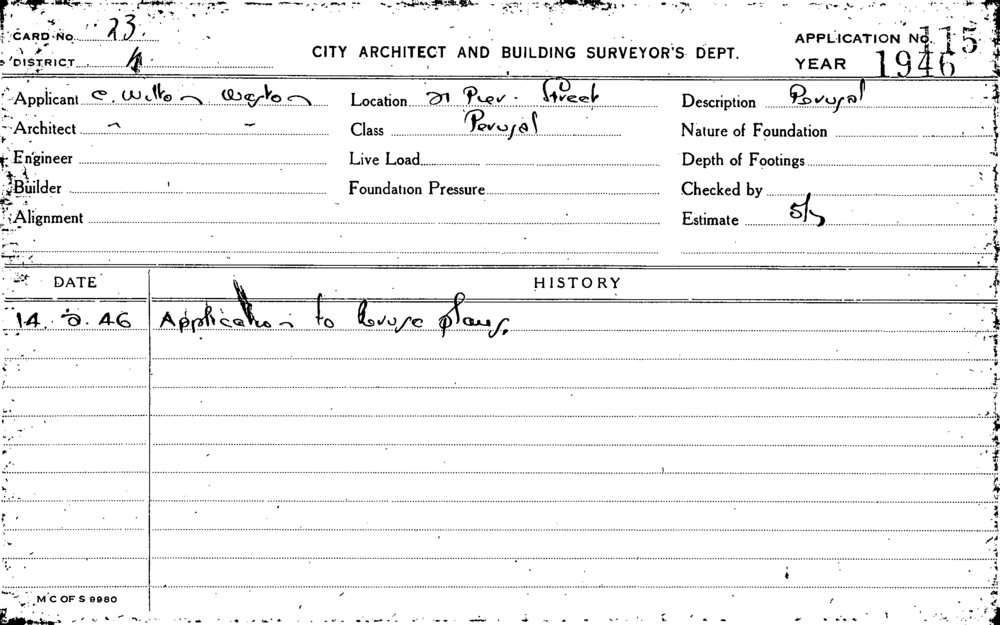 CARD No. 23.
APPLICATION No. 115
DISTRICT
CITY ARCHITECT AND BUILDING SURVEYOR'S DEPT.
YEAR 1946
Applicant C. Wilton Weston
Location 21 Pier Street
Description Perusal
Architect - -
Class Perusal
Nature of Foundation
Engineer
Live Load
Depth of Footings
Builder
Foundation Pressure
Checked by
Alignment
Estimate 5/-
DATE
HISTORY
14. 2. 46 Application to Peruse plans.
M C OF S 9980